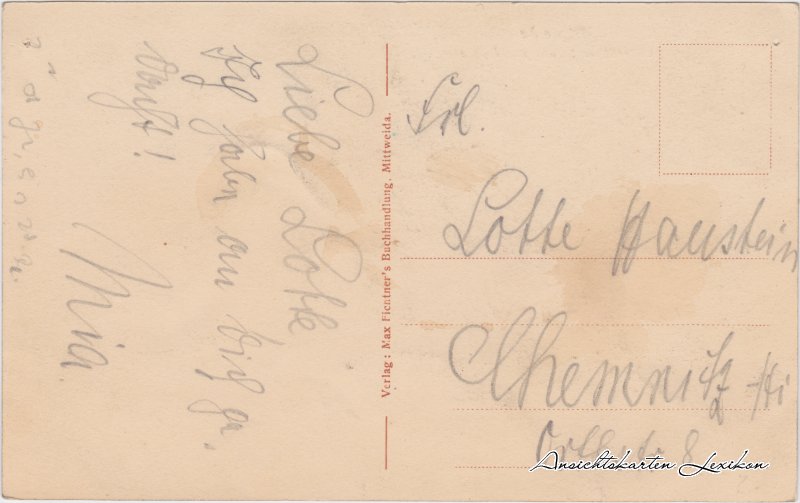 Liebe Lotte
Ich habe an Dich ge-
dacht!
Mia.
Verlag: Max Fichtner's Buchhandlung, Mittweida.
Frl.
Lotte Haustein
Chemnitz-Hi
8
Ansichtskarten Lexikon